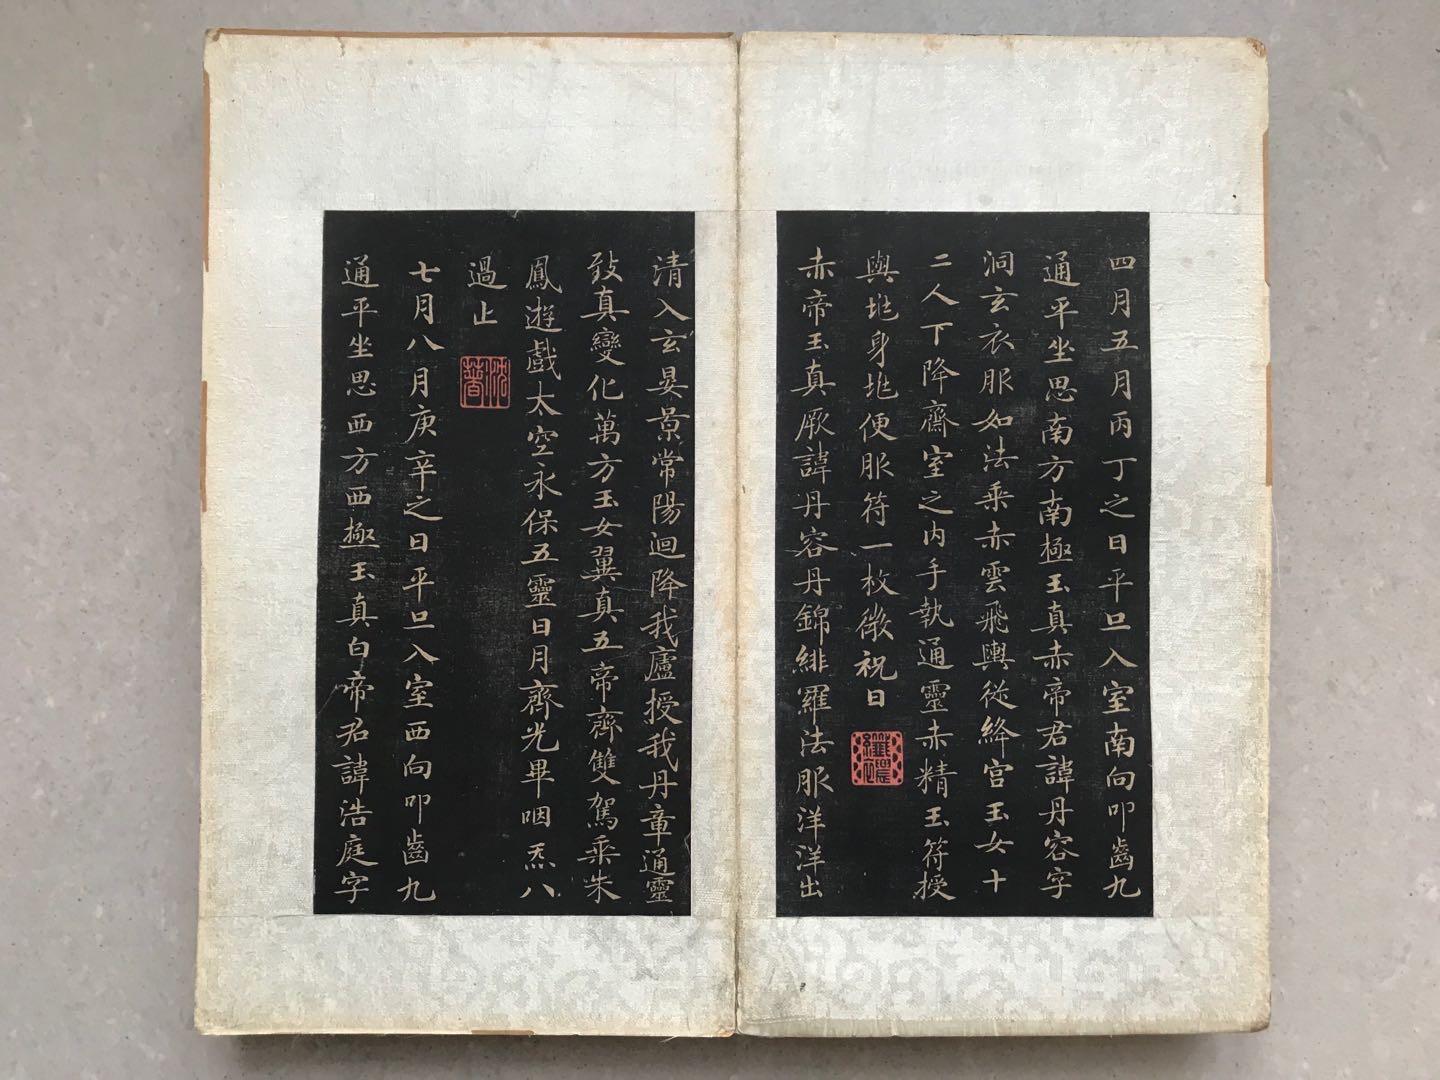 四月五月丙丁之日平旦入室南向叩齒九
通平坐思南方南極玉真赤帝君諱丹容字
洞玄衣服如法乘赤雲飛輿從絳宫玉女十
二人下降齋室之内手執通靈赤精玉符授
與兆身兆便服符一枚微祝曰
赤帝玉真厥諱丹容丹錦緋羅法服洋洋出
清入玄晏景常陽迴降我廬授我丹章通靈
致真變化萬方玉女翼真五帝齊雙駕乘朱
鳳遊戲太空永保五靈日月齊光畢咽炁八
過止
七月八月庚辛之日平旦入室西向叩齒九
通平坐思西方西極玉真白帝君諱浩庭字